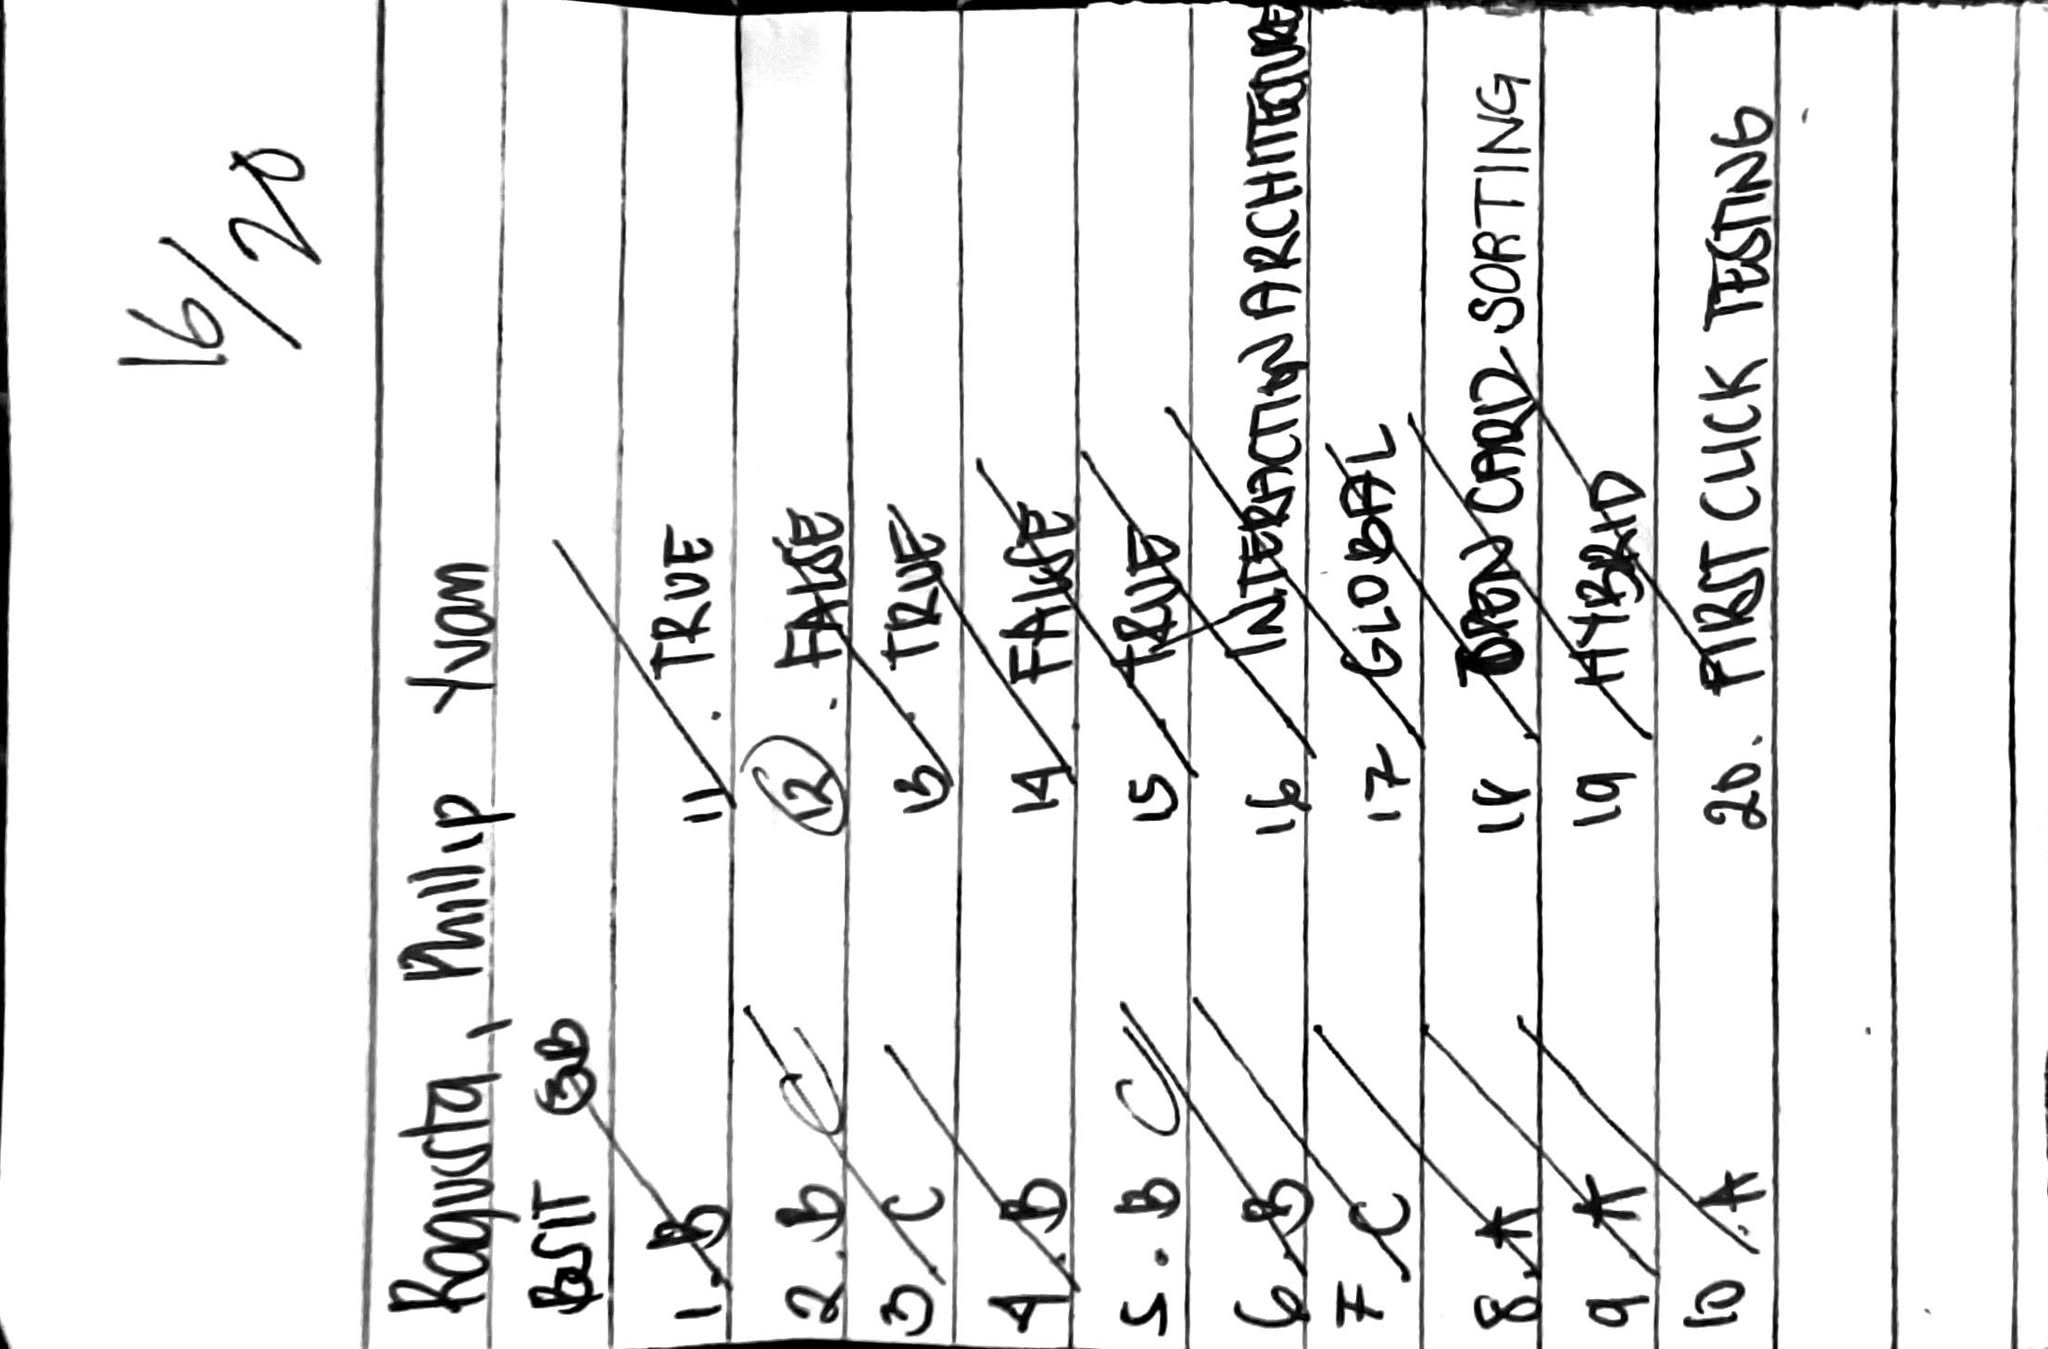 16/20
Ragusta, Phillip Yvan
BSIT 3B
1. B
2. B C
3 C
4. B
5. B C
6. B
7 C
8. A
9 A
10 . A
11 . TRUE
12 . FALSE
13 . TRUE
14 . FALSE
15 . TRUE
16 INTERACTION ARCHITECTURE
17 GLOBAL
18 . OPEN CARD SORTING
19 HYBRID
20. FIRST CLICK TESTING